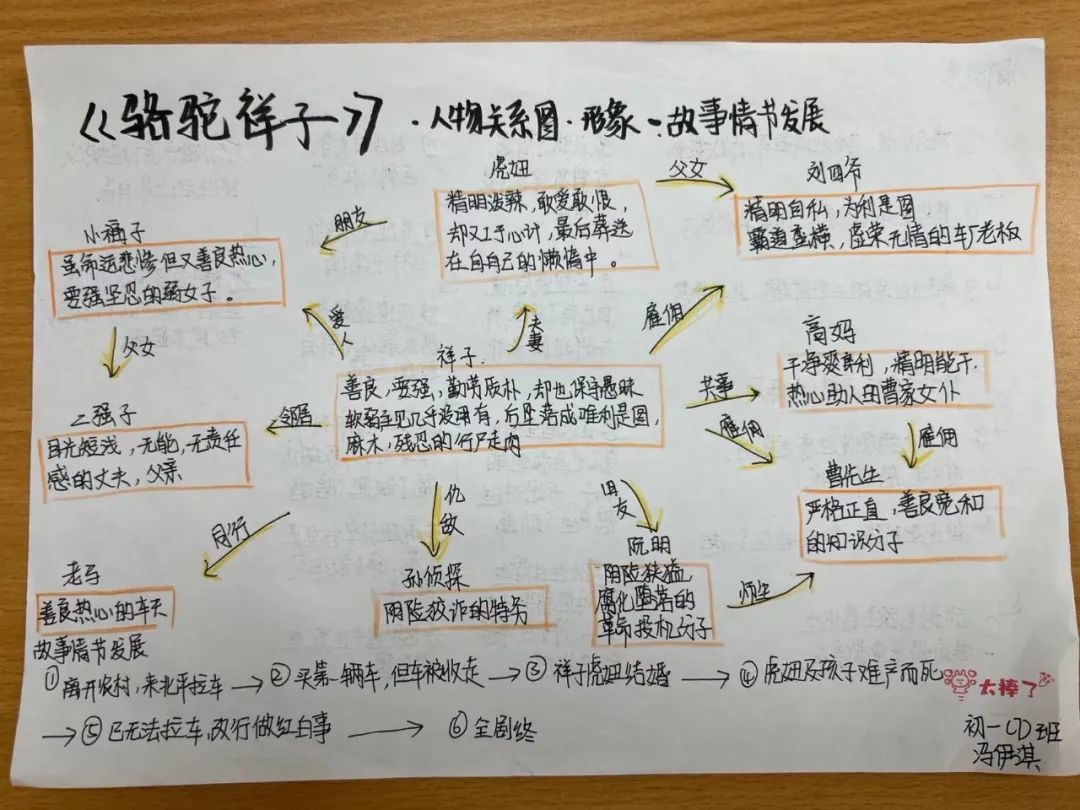 《骆驼祥子》·人物关系图·形象-故事情节发展
虎妞
精明泼辣,敢爱敢恨,
却又工于心计,最后葬送
在自自己的懒惰中。
父女
刘四爷
精明自私,为利是图,
霸道蛮横,虚荣无情的车厂老板
朋友
小福子
虽命运悲惨但又善良热心,
要强坚忍的弱女子。
爱人
夫妻
雇佣
父女
祥子.
善良,要强,勤劳质朴,却也保守愚昧
软弱主见几乎没用有,后坠落成唯利是图,
麻木,残忍的行尸走肉
共事
高妈
干净爽利,精明能干.
热心助人的曹家女仆
邻居
二强子
目光短浅,无能,无责任
感的丈夫,父亲
雇佣
雇佣
曹先生
严格正直,善良宽和
的知识分子
同行
老马
善良热心的车夫
仇敌
孙侦探
阴险狡诈的特务
旧友
阮明
阴险狡猾
腐化堕落的
革命投机分子
师生
故事情节发展
①离开农村,来北平拉车→②买第一辆车,但车被收走→③祥子虎妞结婚→④虎妞及孩子难产而死
太棒了
→⑤已无法拉车,改行做红白事→⑥全剧终
初一(7)班
冯伊淇